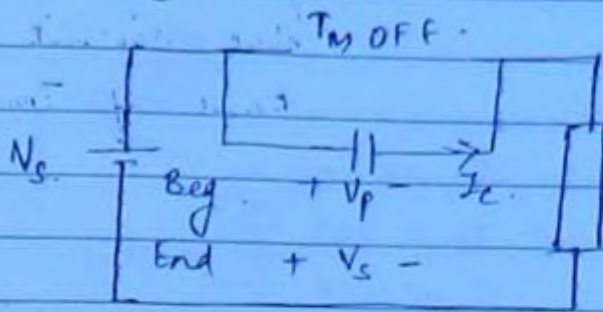 TM OFF.
Vs.
Beg. + Vp - Ic.
End + Vs -